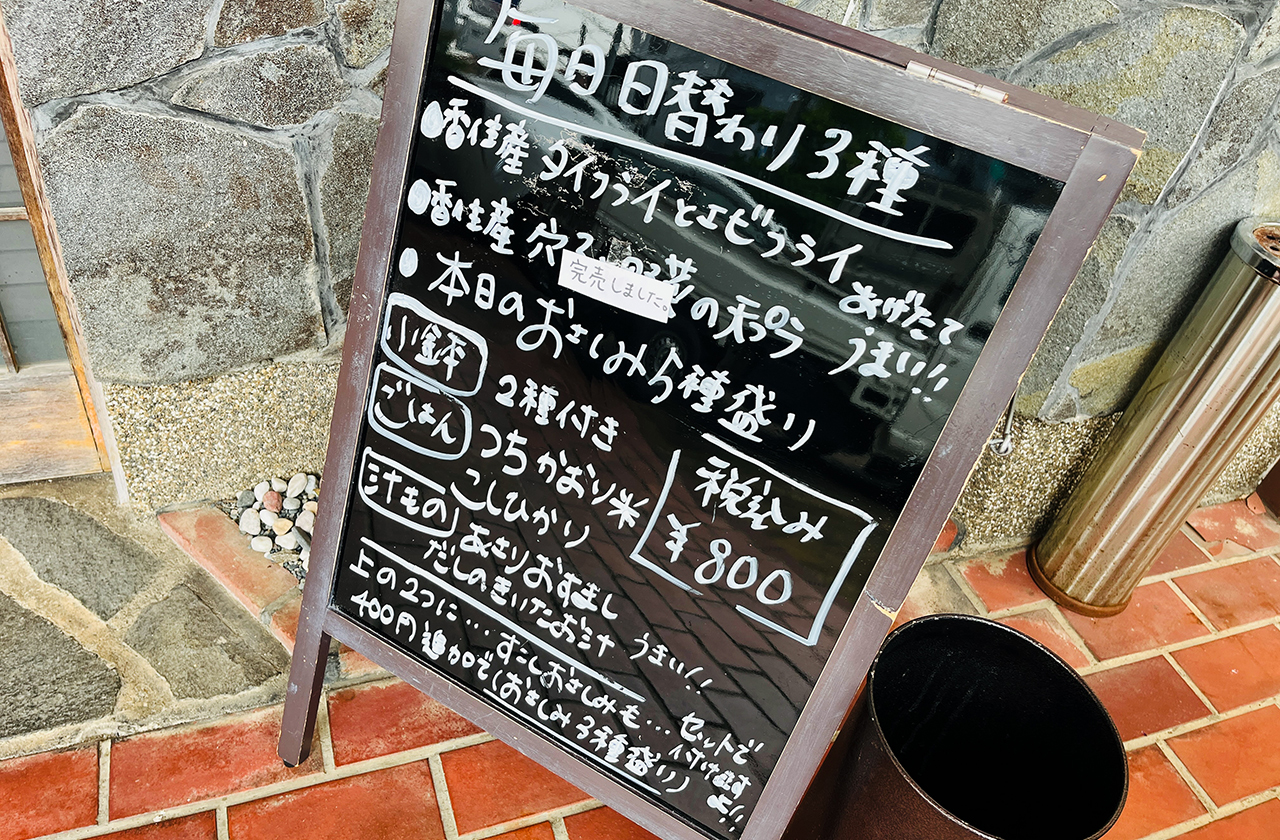 毎日日替わり3種
●香住産 タイフライとエビフライ
●香住産 穴 の天ぷら
完売しました。
あげたて
うまい!!
●本日のおさしみ5種盛り
小鉢 2種付き
ごはん つちかおり米
こしひかり
汁もの あさりおすまし
だしのきいたお汁 うまい!!
税込み
¥800
上の2つに…すこしおさしみも…セットで
400円追加で(おさしみ3種盛り)付けます
よ!!